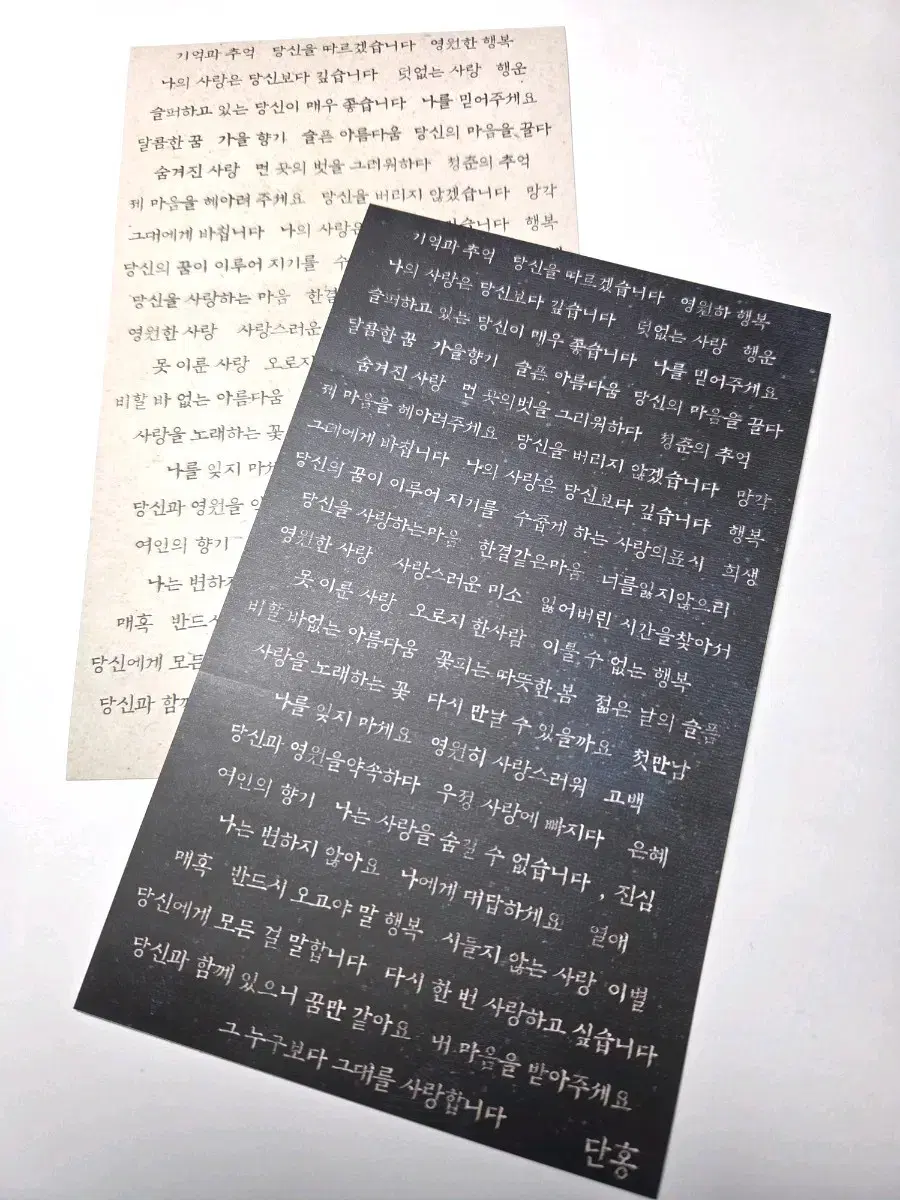 기억과 추억 당신을 따르겠습니다 영원한 행복
나의 사랑은 당신보다 깊습니다 덧없는 사랑 행운
슬퍼하고 있는 당신이 매우 좋습니다 나를 믿어주세요
달콤한 꿈 가을 향기 슬픈 아름다움 당신의 마음을 끌다
숨겨진 사랑 먼 곳의 벗을 그리워하다 청춘의 추억
제 마음을 헤아려 주세요 당신을 버리지 않겠습니다 망각
그대에게 바칩니다 나의 사랑은 습니다 행복
당신의 꿈이 이루어 지기를
당신을 사랑하는 마음 한결
영원한 사랑 사랑스러운
못 이룬 사랑 오로지
비할 바 없는 아름다움
사랑을 노래하는 꽃
나를 잊지 마세
당신과 영원을
여인의 향기
나는 변하지
매혹 반드시
당신에게 모든
당신과 함께
기억과 추억 당신을 따르겠습니다 영원하 행복
나의 사랑은 당신보다 깊습니다 덧없는 사랑 행운
슬퍼하고 있는 당신이 매우 좋습니다 나를 믿어주세요
달콤한 꿈 가을향기 슬픈 아름다움 당신의 마음을 끌다
숨겨진 사랑 먼 곳의벗을 그리워하다 청춘의 추억
제 마음을 헤아려주세요 당신을 버리지 않겠습니다 망각
그대에게 바칩니다 나의 사랑은 당신보다 깊습니다 행복
당신의 꿈이 이루어 지기를 수줍게 하는 사랑의표시 희생
당신을 사랑하는마음 한결같은마음 너를잃지않으리
영원한 사랑 사랑스러운 미소 잃어버린 시간을찾아서
못 이룬 사랑 오로지 한사람 이룰 수 없는 행복
비할 바없는 아름다움 꽃피는 따뜻한 봄 젊은 날의 슬픔
사랑을 노래하는 꽃 다시 만날 수 있을까요 첫만남
나를 잊지 마세요 영원히 사랑스러워 고백
당신과 영원을약속하다 우정 사랑에 빠지다 은혜
여인의 향기 나는 사랑을 숨길 수 없습니다 , 진심
나는 변하지 않아요 나에게 대답하세요 열애
매혹 반드시 오고야 말 행복 시들지 않는 사랑 이별
당신에게 모든 걸 말합니다 다시 한 번 사랑하고 싶습니다
당신과 함께 있으니 꿈만 같아요 내 마음을 받아주세요
그 누구보다 그대를 사랑합니다
단홍